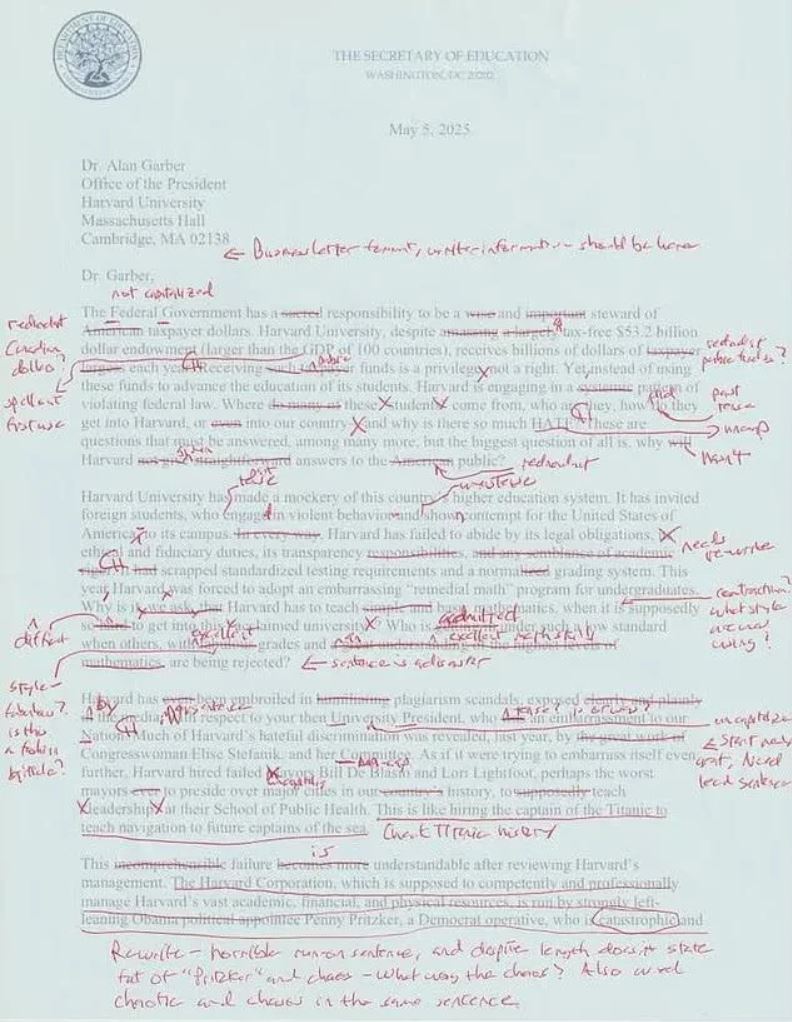 THE SECRETARY OF EDUCATION
WASHINGTON, DC 20202
May 5, 2025
Dr. Alan Garber
Office of the President
Harvard University
Massachusetts Hall
Cambridge, MA 02138
← Business letter format, writer information should be here
Dr. Garber,
not capitalized
The Federal Government has a sacred responsibility to be a wise and important steward of
American taxpayer dollars. Harvard University, despite amassing a largely tax-free $53.2 billion
dollar endowment (larger than the GDP of 100 countries), receives billions of dollars of taxpayer
largess each year. Receiving such taxpayer funds is a privilege, not a right. Yet instead of using
these funds to advance the education of its students, Harvard is engaging in a systemic pattern of
violating federal law. Where do many of these "students" come from, who are they, how do they
get into Harvard, or even into our country and why is there so much HATE? These are
questions that must be answered, among many more, but the biggest question of all is, why will
Harvard not give straightforward answers to the American public?
redundant
Canadian dollars?
spell out first use
redundant
past tense
uncap
won't
redundant
Harvard University has made a mockery of this country's higher education system. It has invited
foreign students, who engage in violent behavior and show contempt for the United States of
America, to its campus. In every way, Harvard has failed to abide by its legal obligations, its
ethical and fiduciary duties, its transparency responsibilities, and any semblance of academic
rigor. It had scrapped standardized testing requirements and a normalized grading system. This
year Harvard was forced to adopt an embarrassing "remedial math" program for undergraduates.
Why is it, we ask, that Harvard has to teach simple and basic mathematics, when it is supposedly
so hard to get into this acclaimed university? Who is under such a low standard
when others, with grades and a great understanding of the highest levels of
mathematics, are being rejected?
← sentence is a disaster
tense
needs rewrite
contraction? what style are we using?
admitted
excellent
excellent math skills
Harvard has even been embroiled in humiliating plagiarism scandals, exposed clearly and plainly
in the media, with respect to your then University President, who an embarrassment to our
Nation. Much of Harvard's hateful discrimination was revealed, last year, by the great work of
Congresswoman Elise Stefanik, and her Committee. As if it were trying to embarrass itself even
further, Harvard hired failed Mayors Bill De Blasio and Lori Lightfoot, perhaps the worst
mayors ever to preside over major cities in our country's history, to supposedly teach
"leadership" at their School of Public Health. This is like hiring the captain of the Titanic to
teach navigation to future captains of the sea.
Check Titanic history
style
by
uncapitalize
is
This incomprehensible failure becomes more understandable after reviewing Harvard's
management. The Harvard Corporation, which is supposed to competently and professionally
manage Harvard's vast academic, financial, and physical resources, is run by strongly left-
leaning Obama political appointee Penny Pritzker, a Democrat operative, who is catastrophic and
Rewrite – horrible run-on sentence, and despite length doesn't state
of "Pritzker" and chaos – what was the chaos? Also used
chaotic and chaos in the same sentence.